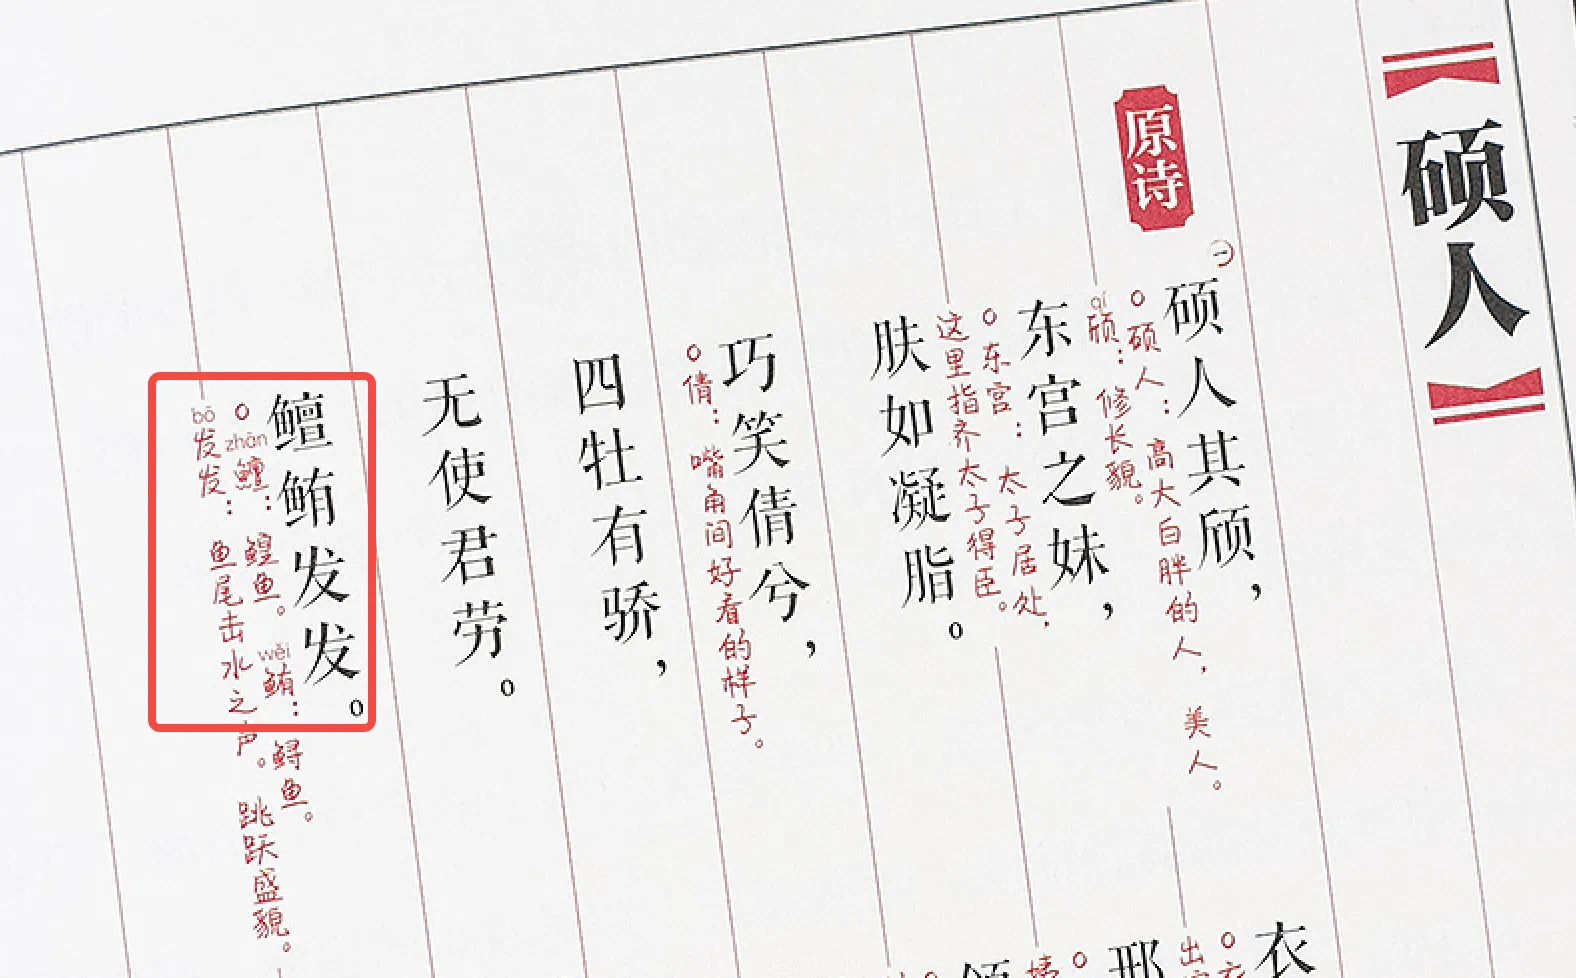 【硕人】
原诗
㊀
硕人其颀，
○硕人：高大白胖的人，美人。
qí
颀：修长貌。
东宫之妹，
○东宫：太子居处，
这里指齐太子得臣。
肤如凝脂。
巧笑倩兮，
○倩：嘴角间好看的样子。
四牡有骄，
无使君劳。
鳣鲔发发。
zhān wěi
○鳣：鳇鱼。鲔：鲟鱼。
bō
发发：鱼尾击水之声。跳跃盛貌。
衣
○衣
邢